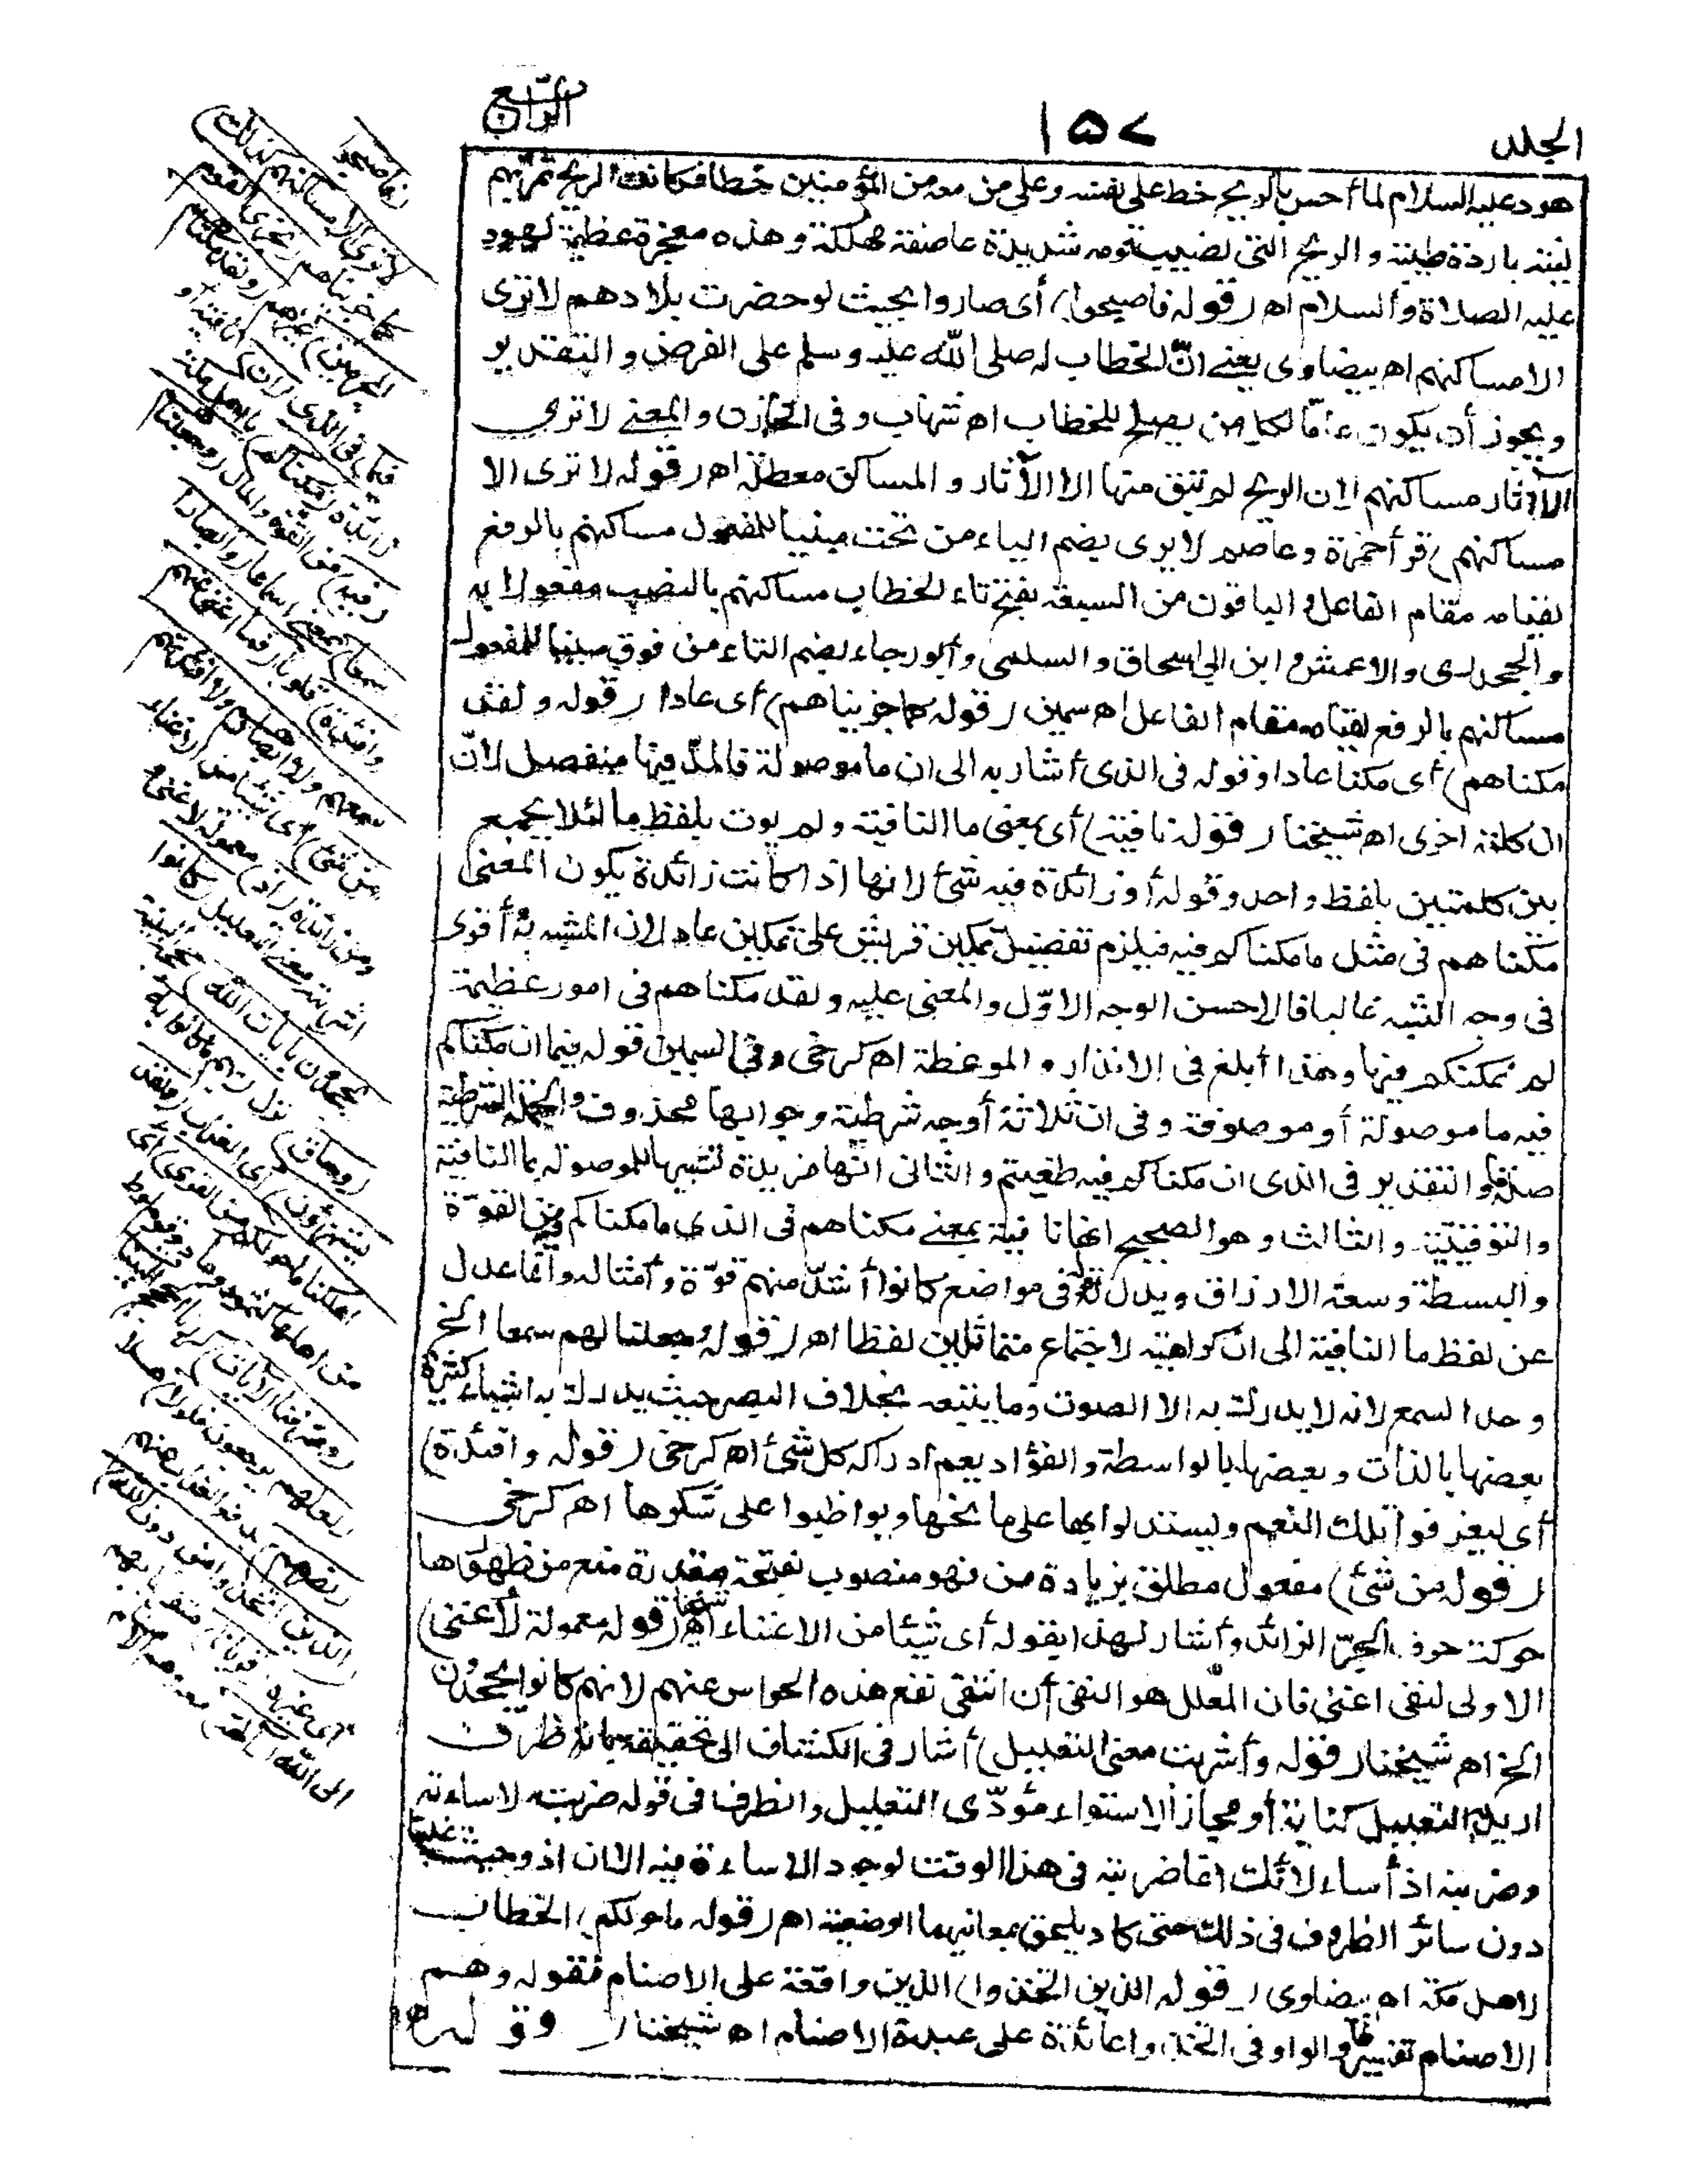 الجلد ١٥٧ الرابع
هود عليه السلام لما أحس بالريح خط على نفسه وعلى من معه من المؤمنين خطا فكانت الريح تمر بهم
لينة باردة طيبة والريح التى تصيب قومه شديدة عاصفة مهلكة وهذه معجزة عظيمة لهود
عليه الصلاة والسلام اه (قوله فاصبحوا) أى صاروا بحيث لو حضرت بلادهم لا ترى
الا مساكنهم اه بيضاوى يعنى انّ الخطاب له صلى الله عليه وسلم على الفرض والتقدير
ويجوز أن يكون عامّا لكل من يصلح للخطاب اه شهاب وفى الخازن والمعنى لا ترى
الا آثار مساكنهم لان الريح لم تبق منها الا الآثار والمساكن معطلة اه (قوله لا ترى الا
مساكنهم) قرأ حمزة وعاصم لا يرى بضم الياء من تحت مبنيا للمفعول مساكنهم بالرفع
لقيامه مقام الفاعل والباقون من السبعة بفتح تاء الخطاب مساكنهم بالنصب مفعولا به
والجحدرى والاعمش وابن ابى اسحاق والسلمى وأبو رجاء بضم التاء من فوق مبنيا للمفعول
مساكنهم بالرفع لقيامه مقام الفاعل اه سمين (قوله كما جزيناهم) أى عادا (قوله ولقد
مكناهم) أى مكنا عادا وقوله فى الذى أشار به الى ان ما موصولة فالمدّ فيها منفصل لانّ
ان كلمة اخرى اه شيخنا (قوله نافية) أى بمعنى ما النافية ولم يوت بلفظ ما لئلا يجمع
بين كلمتين بلفظ واحد وقوله أو زائدة فيه شئ لانها اذا كانت زائدة يكون المعنى
مكناهم فى مثل ما مكناكم فيه فيلزم تفضيل تمكين قريش على تمكين عاد لان المشبه به أقوى
فى وجه الشبه غالبا فالاحسن الوجه الاوّل والمعنى عليه ولقد مكناهم فى امور عظيمة
لم نمكنكم فيها وهذا أبلغ فى الانذار والموعظة اه كرخى وفى السمين قوله فيما ان مكناكم
فيه ما موصولة أو موصوفة وفى ان ثلاثة أوجه شرطية وجوابها محذوف والجملة الشرطية
صلة ما والتقدير فى الذى ان مكناكم فيه طغيتم والثانى انها مزيدة تشبيها للموصولة بما النافية
والتوقيتية والثالث وهو الصحيح انها نافية بمعنى مكناهم فى الذى ما مكناكم فيه من القوّة
والبسطة وسعة الارزاق ويدل له قوله فى مواضع كانوا أشدّ منهم قوّة وأمثاله وانما عدل
عن لفظ ما النافية الى ان كراهية لاجتماع متماثلين لفظا اه (قوله وجعلنا لهم سمعا) الخ
وحد السمع لانه لا يدرك به الا الصوت وما يتبعه بخلاف البصر حيث يدرك به اشياء كثيرة
بعضها بالذات وبعضها بالواسطة والفؤاد يعم ادراكه كل شئ اه كرخى (قوله وافئدة)
أى ليعرفوا تلك النعم وليستدلوا بها على مانحها ويواظبوا على شكرها اه كرخى
(قوله من شئ) مفعول مطلق بزيادة من فهو منصوب بفتحة مقدرة منع من ظهورها
حركة حرف الجرّ الزائد وأشار لهذا بقوله أى شيئا من الاغناء اه شيخنا (قوله معمولة لأغنى)
الاولى لنفى اغنى فان المعلل هو النفى أن انتفى نفع هذه الحواس عنهم لانهم كانوا يجحدون
الخ اه شيخنا (قوله وأشربت معنى التعليل) أشار فى الكشاف الى تحقيقه بانه ظرف
اريد به التعليل كناية أو مجازا لاستواء مؤدّى التعليل والظرف فى قوله ضربته لاساءته
وضربته اذ أساء لانك انما ضربته فى هذا الوقت لوجود الاساءة فيه الا ان اذ وحيث غلبتا
دون سائر الظروف فى ذلك حتى كاد يلحق بمعانيهما الوضعية اه (قوله ما حولكم) الخطاب
لاهل مكة اه بيضاوى (قوله الذين اتخذوا) الذين واقعة على الاصنام فقوله وهم
الاصنام تفسير لها والواو فى اتخذوا عائدة على عبدة الاصنام اه شيخنا (وقوله
(فاصبحوا
لا ترى الا مساكنهم كذلك)
كما جزيناهم (نجزى القوم
المجرمين) غيرهم (ولقد مكناهم
فيما) فى الذى (ان) نافية أو
زائدة (مكناكم) يا اهل مكة
(فيه) من القوّة والمال (وجعلنا لهم
سمعا) بمعنى اسماعا (وابصارا
وافئدة) قلوبا (فما اغنى عنهم
سمعهم ولا ابصارهم ولا افئدتهم
من شئ) أى شيئا من الاغناء
ومن زائدة (اذ) معمولة لاغنى
واشربت معنى التعليل (كانوا
يجحدون بآيات الله) حججه البينة
(وحاق) نزل (بهم ما كانوا به
يستهزؤن) أى العذاب (ولقد
اهلكنا ما حولكم من القرى) أى
من اهلها كثمود وعاد وقوم لوط
(وصرّفنا الآيات) كررنا الحجج البينات
(لعلهم يرجعون فلولا) هلا
(نصرهم) بدفع العذاب عنهم
(الذين اتخذوا من دون الله)
أى غيره (قربانا) متقربا بهم
الى الله